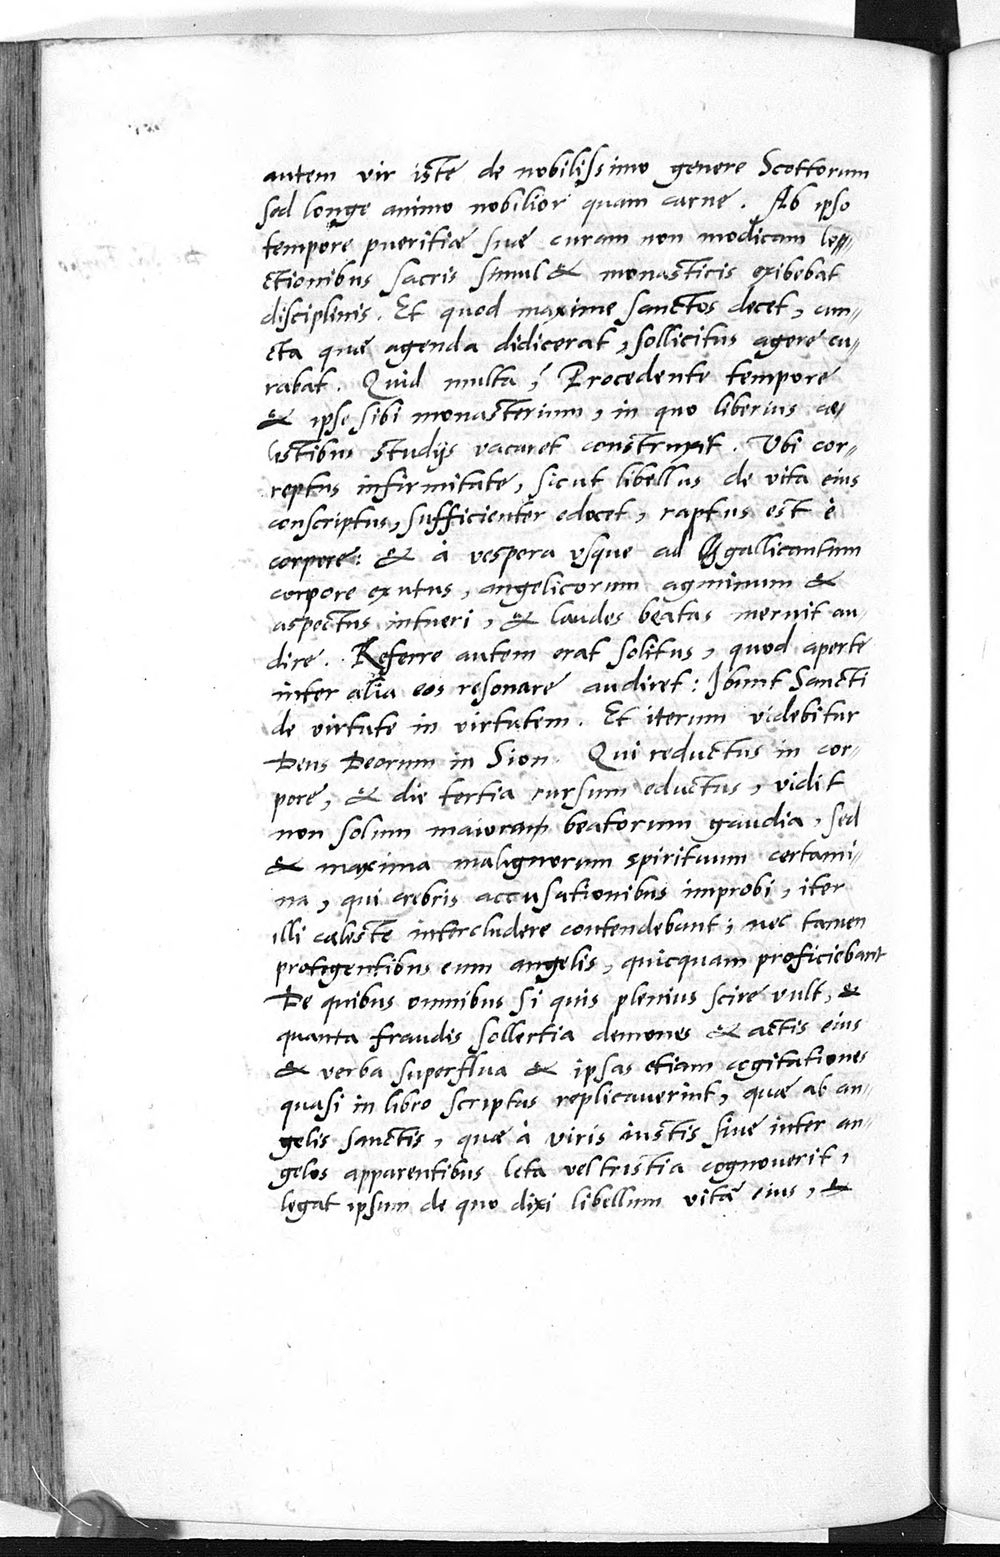 autem vir iste de nobilissimo genere Scottorum
sed longe animo nobilior quam carne. Ab ipso
tempore pueritiæ suæ curam non modicam le-
ctionibus sacris simul & monasticis exibebat
disciplinis. Et quod maxime sanctos decet, cun-
cta quæ agenda didicerat, sollicitus agere cu-
rabat. Quid multa? Procedente tempore
& ipse sibi monasterium, in quo liberius cæ-
lestibus studijs vacaret construxit. Ubi cor-
reptus infirmitate, sicut libellus de vita eius
conscriptus, sufficienter edocet, raptus est è
corpore: & à vespera usque ad gallicantum
corpore exutus, angelicorum agminum &
aspectus intueri, & laudes beatas meruit au-
dire. Referre autem erat solitus, quod aperte
inter alia eos resonare audiret: Ibunt Sancti
de virtute in virtutem. Et iterum videbitur
Deus Deorum in Sion. Qui reductus in cor-
pore, & die tertia rursum eductus, vidit
non solum maiora beatorum gaudia, sed
& maxima malignorum spirituum certami-
na, qui crebris accusationibus improbi, iter
illi cæleste intercludere contendebant; nec tamen
protegentibus eum angelis, quicquam proficiebant
De quibus omnibus si quis plenius scire vult, &
quanta fraudis sollertia demones & actis eius
& verba superflua & ipsas etiam cogitationes
quasi in libro scriptas replicaverint, quæ ab an-
gelis sanctis, quæ à viris iustis sive inter an-
gelos apparentibus leta vel tristia cognoverit,
legat ipsum de quo dixi libellum vitæ eius, &